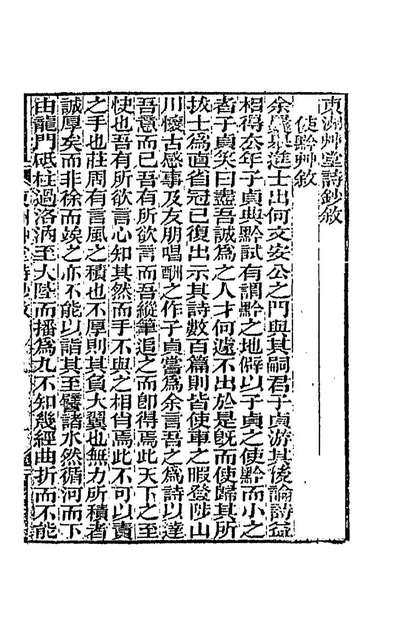 東洲艸堂詩鈔敘
使黔艸敘
余舉進士出何文安公之門與其嗣君子貞游其後論詩益
相得去年子貞典黔試有謂黔之地僻以子貞之使黔而小之
者子貞笑曰盡吾誠為之人才何遽不出於是旣而使歸其所
㧞士為直省冠已復出示其詩數百篇則皆使車之暇登陟山
川懷古感事及友朋唱酬之作子貞嘗為余言吾之為詩以達
吾意而已吾有所欲言而吾縱筆追之而即得焉此天下之至
快也吾有所欲言心知其然而手不與之相肖焉此不可以責
之手也莊周有言風之積也不厚則其負大翼也無力所積者
誠厚矣而非徐而竢之亦不能以詣其至譬諸水然循河而下
由龍門砥柱過洛汭至大陸而播為九不知幾經曲折而不能